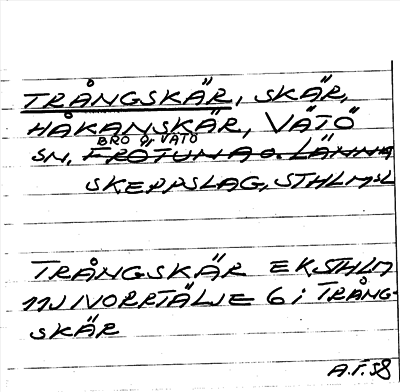 TRÅNGSKÄR, SKÄR,
HÅKANSKÄR, VÄTÖ
BRO O. VÄTÖ
SN, FRÖTUNA O. LÄNNA
SKEPPSLAG, STHLMSL
TRÅNGSKÄR EK STHLM
11J NORRTÄLJE 6 i TRÅNG-
SKÄR
A.F. 58